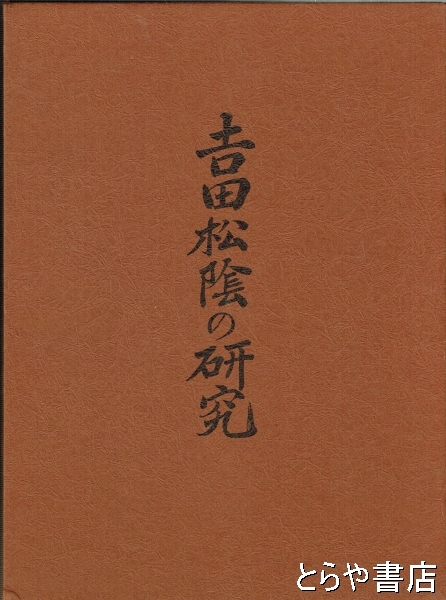 𠮷田松陰の研究
とらや書店